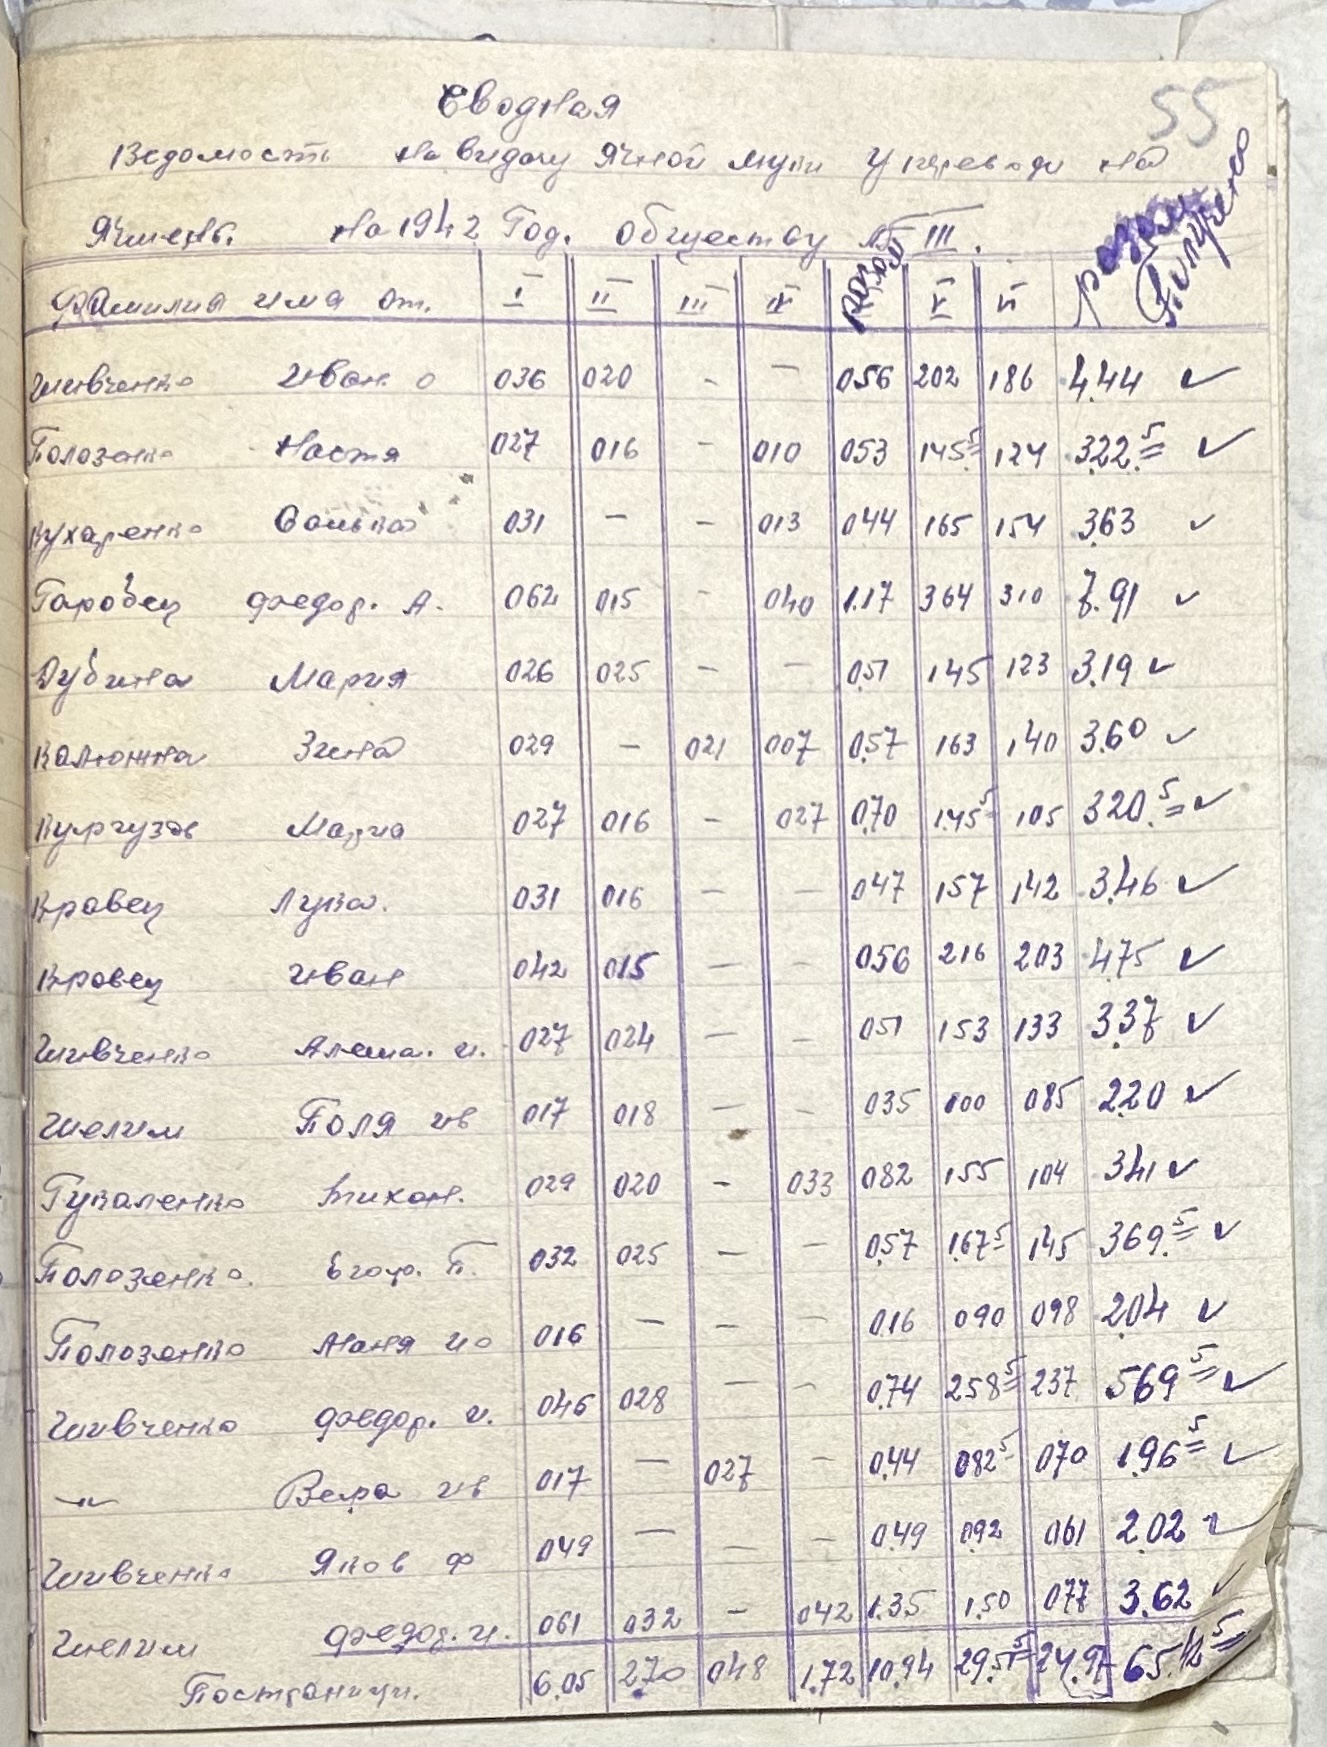 55
Сводная
Ведомость на видачу ячной муки у переводи на
Ячмень. на 1942 Год. обществу № III.
Фамилия има от. I II III IV разом V VI разом Получено
Шивченко Иван о 036 020 - - 056 202 186 4.44 ✓
Полозенко Настя 027 016 - 010 053 145⁵ 124 322.⁵ ✓
Кухаренко Санька 031 - - 013 044 165 154 363 ✓
Горобец Федор. А. 062 015 - 040 1.17 364 310 7.91 ✓
Дубина Мария 026 025 - - 051 145 123 3.19 ✓
Калюжна Зина 029 - 021 007 057 163 140 3.60 ✓
Кургузов Мария 027 016 - 027 070 1.45⁵ 105 320.⁵ ✓
Кравец Лука. 031 016 - - 047 157 142 3.46 ✓
Кровец Иван 042 015 - - 056 216 203 475 ✓
Шивченко Алеша. и. 027 024 - - 051 153 133 3.37 ✓
Шелим Поля ив 017 018 - - 035 100 085 220 ✓
Гукаленко Тихон. 029 020 - 033 082 155 104 341 ✓
Полозенко. Егор. П. 032 025 - - 057 1.67⁵ 145 369.⁵ ✓
Полозенко Маня 016 - - - 016 090 098 204 ✓
Шивченко Федор. и. 046 028 - - 074 258⁵ 237 569⁵ ✓
—"— Вера ив 017 - 027 - 044 082⁵ 070 1.96⁵ ✓
Шивченко Яков Ф 049 - - - 049 092 061 2.02 ✓
Шелим Федор. и. 061 032 - 042 1.35 1.50 077 3.62 ✓
6.05 270 048 1.72 10.94 29.51⁵ 24.97 65.42⁵